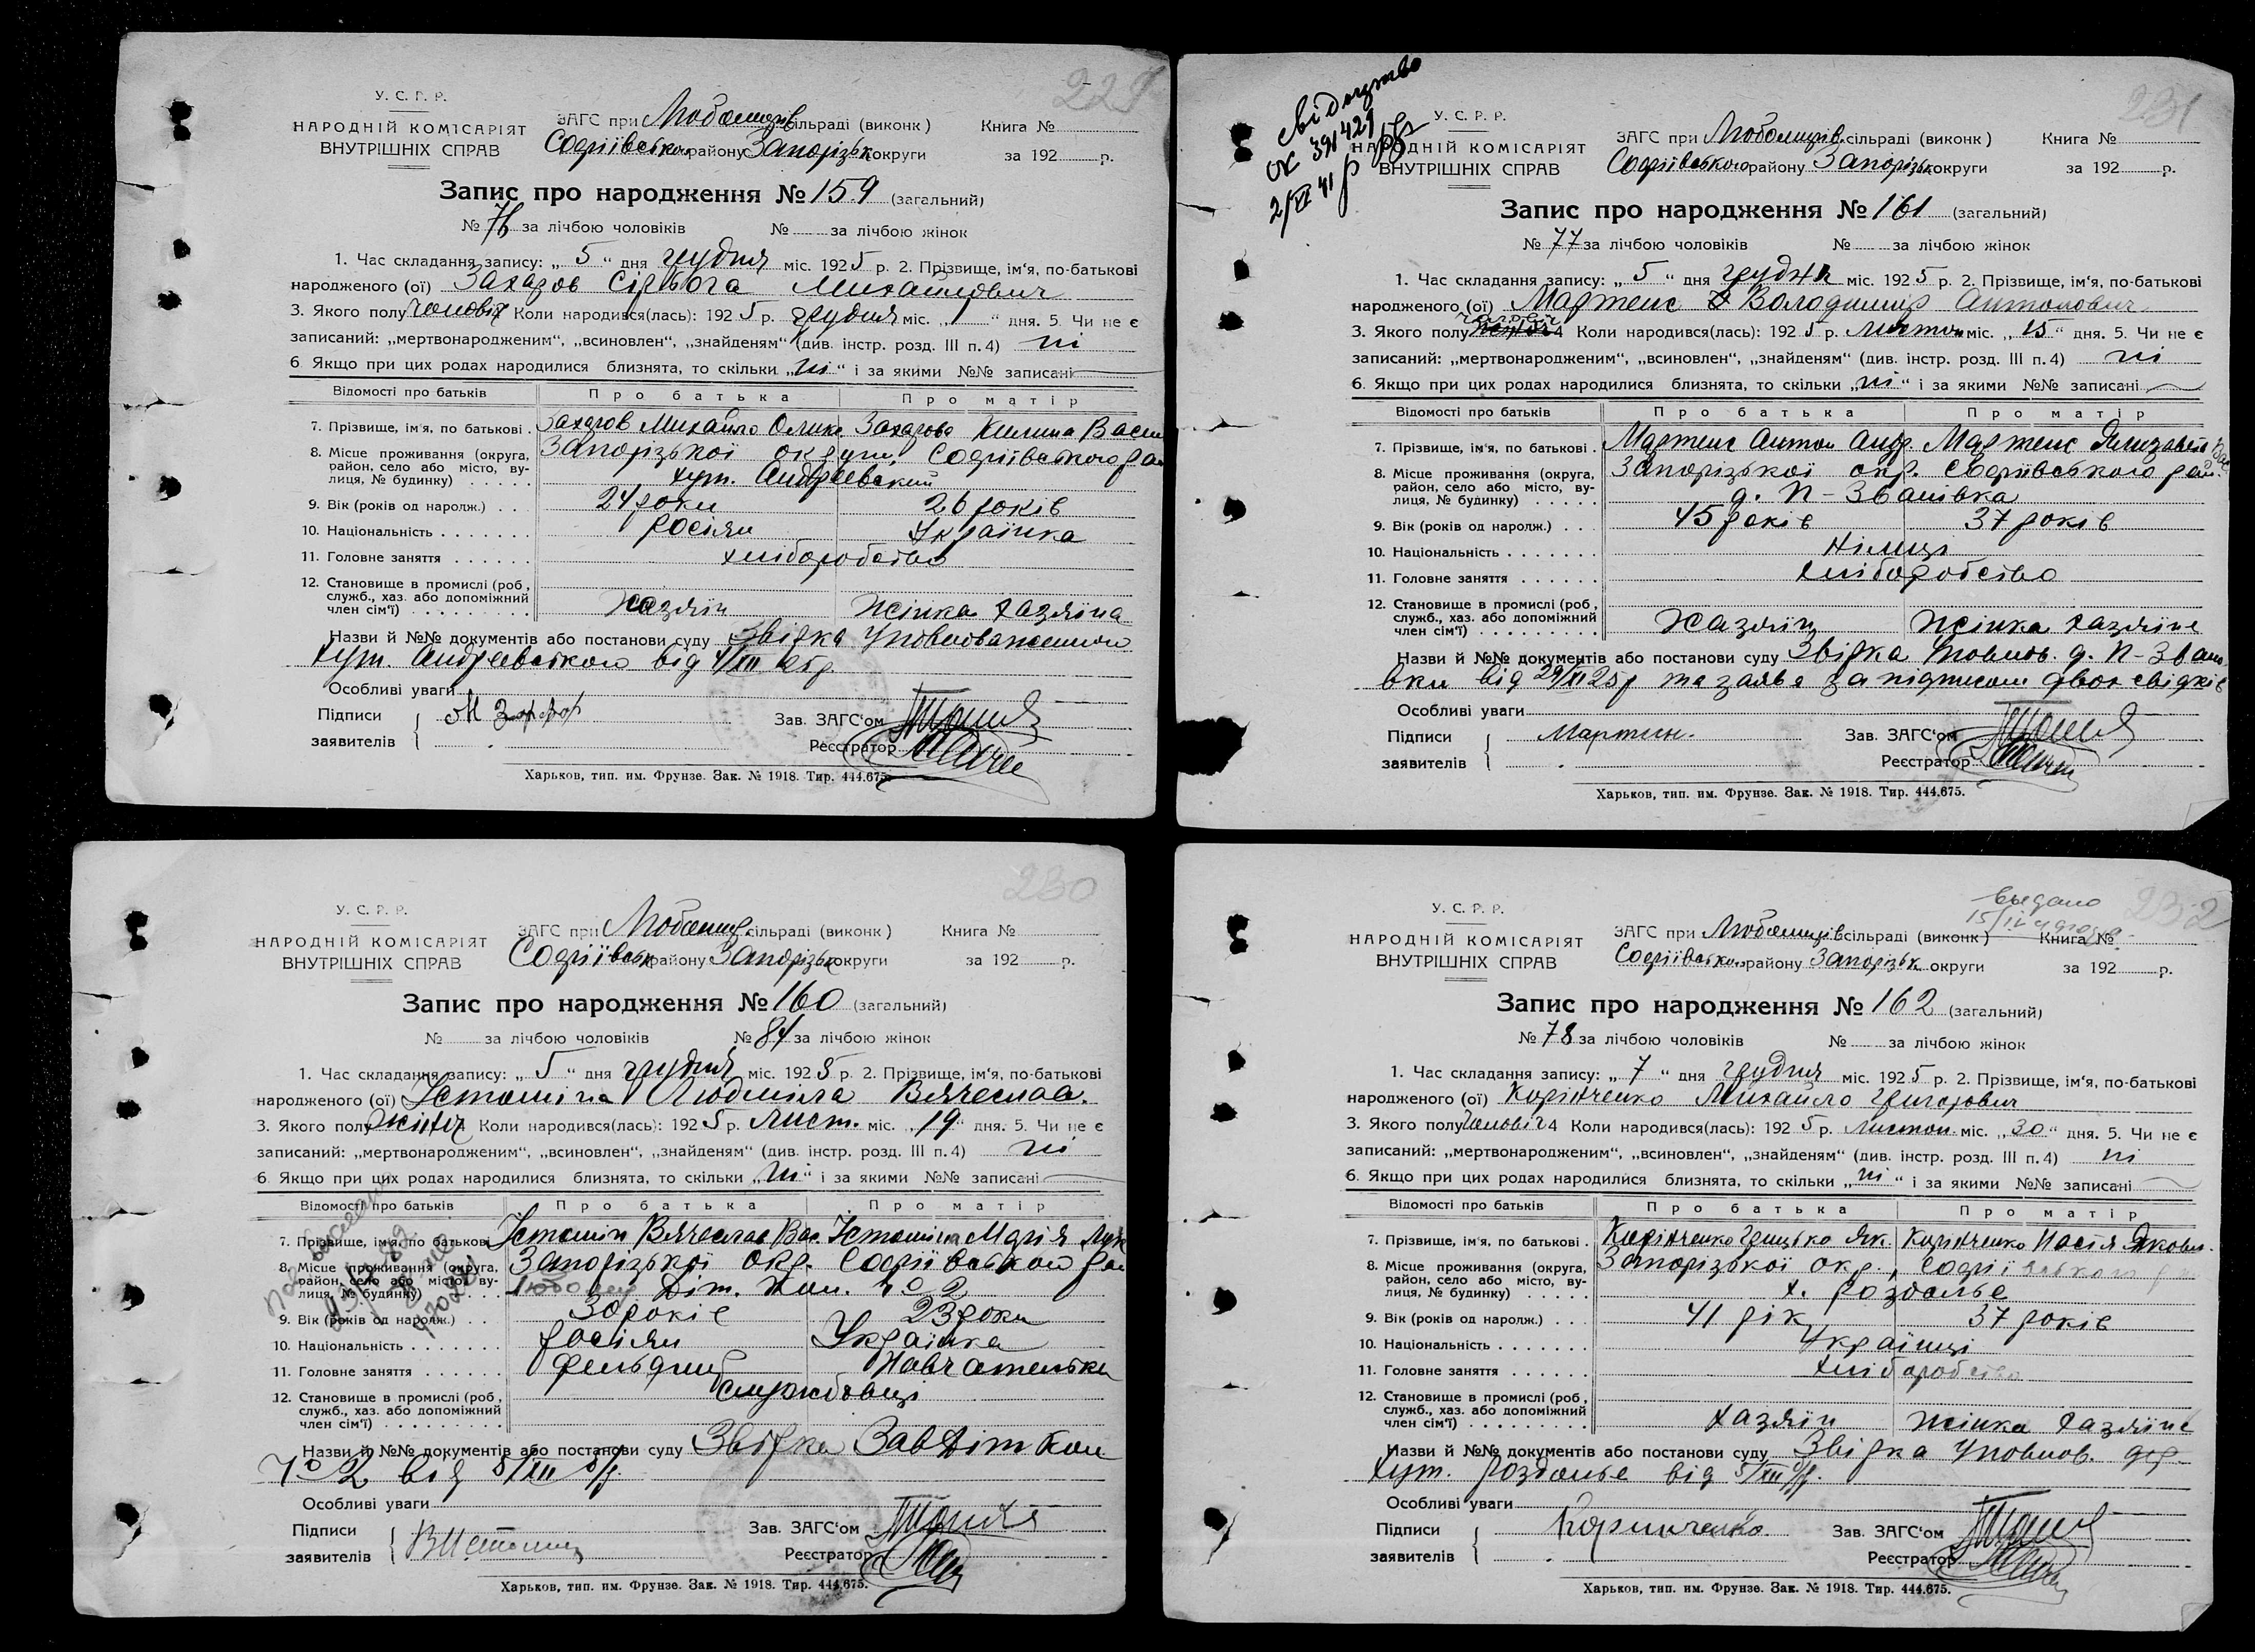 229
У. С. Р. Р.
НАРОДНІЙ КОМІСАРІЯТ
ВНУТРІШНІХ СПРАВ
ЗАГС при Любомирів. сільраді (виконк) Книга №
Софіївськ району Запорізьк округи за 192 р.
Запис про народження № 159 (загальний)
№ 76 за лічбою чоловіків № за лічбою жінок
1. Час складання запису: „ 5 “ дня грудня міс. 1925 р. 2. Прізвище, ім‘я, по-батькові
народженого (ої) Захаров Михайлович
3. Якого полу чоловіч Коли народився(лась): 1925 р. грудня міс. „ 1 “ дня. 5. Чи не є
записаний: „мертвонародженим“, „всиновлен“, „знайденям“ (див. інстр. розд. III п. 4) ні
6. Якщо при цих родах народилися близнята, то скільки „ ні “ і за якими №№ записані
Відомості про батьків Про батька Про матір
7. Прізвище, ім‘я, по батькові Захаров Михайло Захарова Килина Васил
8. Місце проживання (округа, Запорізької округи, Софіївського рай
район, село або місто, ву-
лиця, № будинку) хут. Андреевский
9. Вік (років од наролж.) 24 роки 26 років
10. Національність росіян Українка
11. Головне заняття хліборобство
12. Становище в промислі (роб,
служб., хаз. або допоміжний
член сім‘ї) Хазяїн жінка хазяїна
Назви й №№ документів або постанови суду Звірка Уповноваженного
хут. Андреевського від 4/XII
Особливі уваги
Підписи
заявителів
Зав. ЗАГС‘ом
Реєстратор
Харьков, тип. им. Фрунзе. Зак. № 1918. Тир. 444.675.
231
Свідоцтво
ОК 391421
2/VI 41 р
У. С. Р. Р.
НАРОДНІЙ КОМІСАРІЯТ
ВНУТРІШНІХ СПРАВ
ЗАГС при Любомирів. сільраді (виконк) Книга №
Софіївського району Запорізьк округи за 192 р.
Запис про народження № 161 (загальний)
№ 77 за лічбою чоловіків № за лічбою жінок
1. Час складання запису: „ 5 “ дня грудня міс. 1925 р. 2. Прізвище, ім‘я, по-батькові
народженого (ої) Мартенс Володимир Антонович
3. Якого полу чоловіч Коли народився(лась): 1925 р. листоп міс. „ 15 “ дня. 5. Чи не є
записаний: „мертвонародженим“, „всиновлен“, „знайденям“ (див. інстр. розд. III п. 4) ні
6. Якщо при цих родах народилися близнята, то скільки „ ні “ і за якими №№ записані
Відомості про батьків Про батька Про матір
7. Прізвище, ім‘я, по батькові Мартенс Антон Андр. Мартенс Єлизавета
8. Місце проживання (округа, Запорізької окр. Софіївського рай.
район, село або місто, ву-
лиця, № будинку) д. П-Званівка
9. Вік (років од наролж.) 45 років 37 років
10. Національність Німці
11. Головне заняття хліборобство
12. Становище в промислі (роб,
служб., хаз. або допоміжний
член сім‘ї) Хазяїн жінка хазяїна
Назви й №№ документів або постанови суду Звірка Уповнов. д. П-Звано
вки від 29/XI 25 р та заява за підписом двох свідків
Особливі уваги
Підписи
заявителів Мартин.
Зав. ЗАГС‘ом
Реєстратор
Харьков, тип. им. Фрунзе. Зак. № 1918. Тир. 444.675.
230
У. С. Р. Р.
НАРОДНІЙ КОМІСАРІЯТ
ВНУТРІШНІХ СПРАВ
ЗАГС при Любомир. сільраді (виконк) Книга №
Софіївськ району Запорізьк округи за 192 р.
Запис про народження № 160 (загальний)
№ за лічбою чоловіків № 84 за лічбою жінок
1. Час складання запису: „ 5 “ дня грудня міс. 1925 р. 2. Прізвище, ім‘я, по-батькові
народженого (ої) Істоміна Людміла Вячеслав.
3. Якого полу жіноч Коли народився(лась): 1925 р. лист. міс. „ 19 “ дня. 5. Чи не є
записаний: „мертвонародженим“, „всиновлен“, „знайденям“ (див. інстр. розд. III п. 4) ні
6. Якщо при цих родах народилися близнята, то скільки „ ні “ і за якими №№ записані
Відомості про батьків Про батька Про матір
7. Прізвище, ім‘я, по батькові Істомін Вячеслав Вас. Істоміна Марія Лук
8. Місце проживання (округа, Запорізької окр. Софіївського рай
район, село або місто, ву-
лиця, № будинку) Діт. Кол. № 2
9. Вік (років од наролж.) 30 років 23 роки
10. Національність росіян Українка
11. Головне заняття фельдшер Навчателька
12. Становище в промислі (роб,
служб., хаз. або допоміжний
член сім‘ї) службовці
Назви й №№ документів або постанови суду Звірка Зав Діт Кол
№ 2 від 5/XII
Особливі уваги
Підписи
заявителів В Истомин
Зав. ЗАГС‘ом
Реєстратор
Харьков, тип. им. Фрунзе. Зак. № 1918. Тир. 444.675.
232
выдано
У. С. Р. Р.
НАРОДНІЙ КОМІСАРІЯТ
ВНУТРІШНІХ СПРАВ
ЗАГС при Любомирів сільраді (виконк) Книга №
Софіївськ. району Запорізьк. округи за 192 р.
Запис про народження № 162 (загальний)
№ 78 за лічбою чоловіків № за лічбою жінок
1. Час складання запису: „ 7 “ дня грудня міс. 1925 р. 2. Прізвище, ім‘я, по-батькові
народженого (ої) Корінченко Михайло Григорович
3. Якого полу чоловіч Коли народився(лась): 1925 р. листоп. міс. „ 30 “ дня. 5. Чи не є
записаний: „мертвонародженим“, „всиновлен“, „знайденям“ (див. інстр. розд. III п. 4) ні
6. Якщо при цих родах народилися близнята, то скільки „ ні “ і за якими №№ записані
Відомості про батьків Про батька Про матір
7. Прізвище, ім‘я, по батькові Корінченко Грицько Як. Корінченко Настя Яковл.
8. Місце проживання (округа, Запорізької окр., Софіївського
район, село або місто, ву-
лиця, № будинку) х. роздолье
9. Вік (років од наролж.) 41 рік 37 років
10. Національність Українці
11. Головне заняття хліборобство
12. Становище в промислі (роб,
служб., хаз. або допоміжний
член сім‘ї) хазяїн жінка хазяїна
Назви й №№ документів або постанови суду Звірка Уповнов.
хут. роздолье від 5/XII
Особливі уваги
Підписи
заявителів Коринченко
Зав. ЗАГС‘ом
Реєстратор
Харьков, тип. им. Фрунзе. Зак. № 1918. Тир. 444.675.